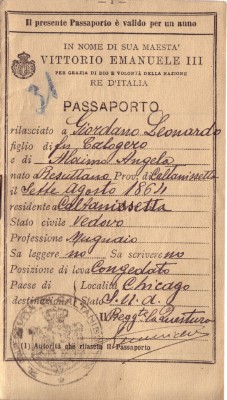 Il presente Passaporto è valido per un anno
IN NOME DI SUA MAESTA'
VITTORIO EMANUELE III
PER GRAZIA DI DIO E VOLONTÀ DELLA NAZIONE
RE D'ITALIA
31
PASSAPORTO
rilasciato a Giordano Leonardo
figlio di fu Calogero
e di Maira Angela
nato Resuttano Prov. di Caltanissetta
il Sette Agosto 1864
residente a Caltanissetta
Stato civile Vedovo
Professione Mugnaio
Sa leggere no Sa scrivere no
Posizione di leva Congedato
Paese di Località Chicago
destinazione Stato S.U.A.
Il Regg.te la Questura
(1) Autorità che rilascia il Passaporto